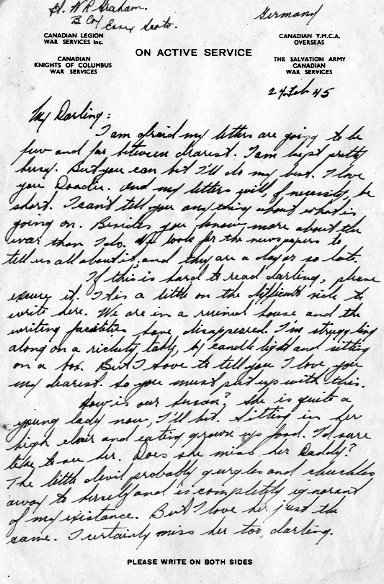 Lt. W R Graham.
B Coy
Essex Scots.
Germany
CANADIAN LEGION
WAR SERVICES Inc.
CANADIAN
KNIGHTS OF COLUMBUS
WAR SERVICES
ON ACTIVE SERVICE
CANADIAN Y.M.C.A.
OVERSEAS
THE SALVATION ARMY
CANADIAN
WAR SERVICES
27 Feb 45
My Darling:
I am afraid my letters are going to be
few and far between dearest. I am kept pretty
busy. But you can bet I'll do my best. I love
you. And my letters will, of necessity, be
short. I can't tell you anything about what is
going on. Besides you know more about the
war than I do. We look for the newspapers to
tell us all about it, and they are a day or so late.
If this is hard to read darling, please
excuse it. It is a little on the difficult side to
write here. We are in a ruined house and the
writing facilities have disappeared. I'm struggling
along on a rickety table, by candle light and sitting
on a box. But I have to tell you I love you
my dearest. so you must put up with this.
How is our Susan? She is quite a
young lady now, I'll bet. Sitting in her
high chair and eating grown ups food. I'd sure
like to see her. Does she miss her Daddy?
The little devil probably gurgles and chuckles
away to herself and is completely ignorant
of my existance. But I love her just the
same. I certainly miss her too, darling.
PLEASE WRITE ON BOTH SIDES